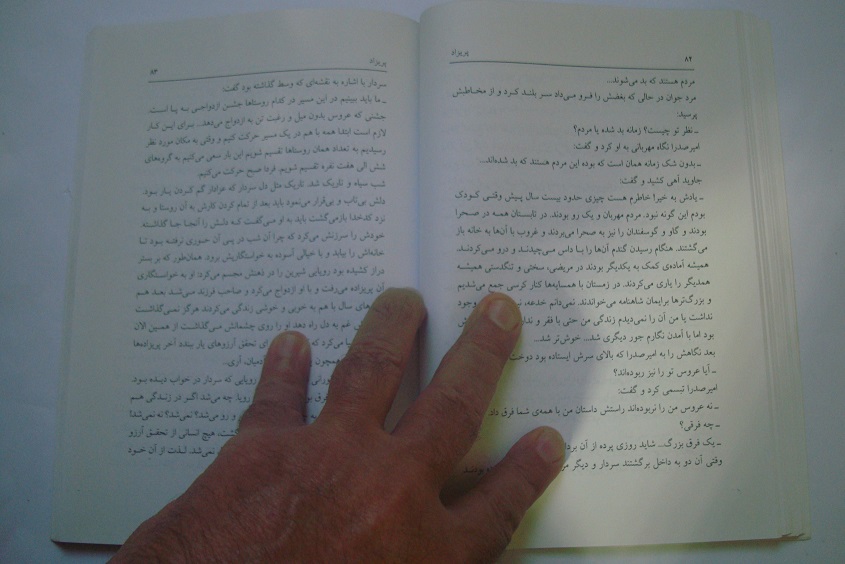 ۸۲
پریزاد
مردم هستند که بد می‌شوند...
مرد جوان در حالی که بغضش را فرو می‌داد سر بلند کرد و از مخاطبش
پرسید:
ـ نظر تو چیست؟ زمانه بد شده یا مردم؟
امیرصدرا نگاه مهربانی به او کرد و گفت:
ـ بدون شک زمانه همان است که بوده این مردم هستند که بد شده‌اند...
جاوید آهی کشید و گفت:
ـ یادش به خیر! خاطرم هست چیزی حدود بیست سال پیش وقتی کودک
بودم این گونه نبود. مردم مهربان و یک رو بودند. در تابستان همه در صحرا
بودند و گاو و گوسفندان را نیز به صحرا می‌بردند و غروب با آن‌ها به خانه باز
می‌گشتند. هنگام رسیدن گندم آن‌ها را با داس می‌چیدند و درو می‌کردند.
همیشه آماده‌ی کمک به یکدیگر بودند در مریضی، سختی و تنگدستی همیشه
همدیگر را یاری می‌کردند. در زمستان با همسایه‌ها کنار کرسی جمع می‌شدیم
و بزرگ‌ترها برایمان شاهنامه می‌خواندند. نمی‌دانم خدعه، وجود
نداشت یا من آن را نمی‌دیدم زندگی من حتی با فقر و
بود اما با آمدن نگارم جور دیگری شد... خوش‌تر شد...
بعد نگاهش را به امیرصدرا که بالای سرش ایستاده بود دوخت
ـ آیا عروس تو را نیز ربوده‌اند؟
امیرصدرا تبسمی کرد و گفت:
ـ نه عروس من را نربوده‌اند راستش داستان من با همه‌ی شما فرق دارد
ـ چه فرقی؟
ـ یک فرق بزرگ... شاید روزی پرده از آن
وقتی آن دو به داخل برگشتند سردار و دیگر
پریزاد
۸۳
سردار با اشاره به نقشه‌ای که وسط گذاشته بود گفت:
ـ ما باید ببینیم در این مسیر در کدام روستاها جشن ازدواجی به پا است.
جشنی که عروس بدون میل و رغبت تن به ازدواج می‌دهد... برای این کار
لازم است ابتدا همه با هم در یک مسیر حرکت کنیم و وقتی به مکان مورد نظر
رسیدیم به تعداد همان روستاها تقسیم شویم این بار سعی می‌کنیم به گروه‌های
شش الی هفت نفره تقسیم شویم. فردا صبح حرکت می‌کنیم.
شب سیاه و تاریک شد. تاریک مثل دل سردار که عزادار گم کردن یار بود.
دلش بی‌تاب و بی‌قرار می‌نمود باید بعد از تمام کردن کارش به آن روستا و به
نزد کدخدا بازمی‌گشت باید به او می‌گفت که دلش را آنجا جا گذاشته.
خودش را سرزنش می‌کرد که چرا آن شب در پی آن حوری نرفته بود تا
خانه‌اش را بیابد و با خیالی آسوده به خواستگاریش برود. همان‌طور که بر بستر
دراز کشیده بود رویایی شیرین را در ذهنش مجسم می‌کرد؛ او به خواستگاری
آن پریزاده می‌رفت و با او ازدواج می‌کرد و صاحب فرزند می‌شد بعد هم
سال با هم به خوبی و خوشی زندگی می‌کردند هرگز نمی‌گذاشت
غم به دل راه دهد او را روی چشمانش می‌گذاشت از همین الان
می‌کرد که برای تحقق آرزوهای یار ببندد آخر پریزاده‌ها
همچون آدمیان، آری...
رویایی که سردار در خواب دیده بود
فرق رویا، چه می‌شد اگر در زندگی هم
و رو می‌شد؟ نمی‌شد؟ نه نمی‌شد!
هیچ انسانی از تحقق آرزو
نمی‌شد. لذت از آن خود